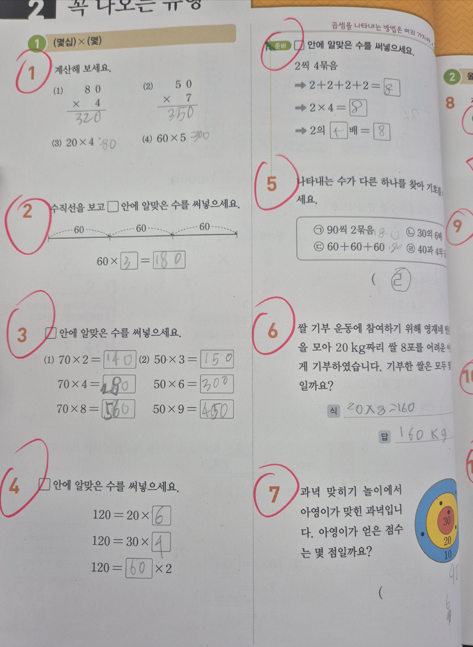 2 꼭 나오는 유형
1 (몇십)×(몇)
1 계산해 보세요.
(1) 80 × 4 320
(2) 50 × 7 350
(3) 20×4 80
(4) 60×5 300
2 수직선을 보고 □안에 알맞은 수를 써넣으세요.
60 60 60
60×3=180
3 □안에 알맞은 수를 써넣으세요.
(1) 70×2=140 (2) 50×3=150
70×4=280 50×6=300
70×8=560 50×9=450
4 □안에 알맞은 수를 써넣으세요.
120=20×6
120=30×4
120=60×2
곱셈을 나타내는 방법은 여러 가지
준비 □안에 알맞은 수를 써넣으세요.
2씩 4묶음
➡ 2+2+2+2=8
➡ 2×4=8
➡ 2의 4배=8
5 나타내는 수가 다른 하나를 찾아 기호를
세요.
㉠ 90씩 2묶음 ㉡ 30의 6배
㉢ 60+60+60 ㉣ 40과 4의
( ㉣
6 쌀 기부 운동에 참여하기 위해 영재네
을 모아 20 kg짜리 쌀 8포를 어려운
게 기부하였습니다. 기부한 쌀은 모두
일까요?
식 20×8=160
답 160 kg
7 과녁 맞히기 놀이에서
아영이가 맞힌 과녁입니
다. 아영이가 얻은 점수
는 몇 점일까요?
30
20
10
(
2
8
9
10